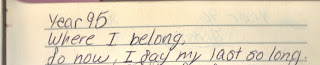 Year 95
Where I belong,
do now, I say my last so long.